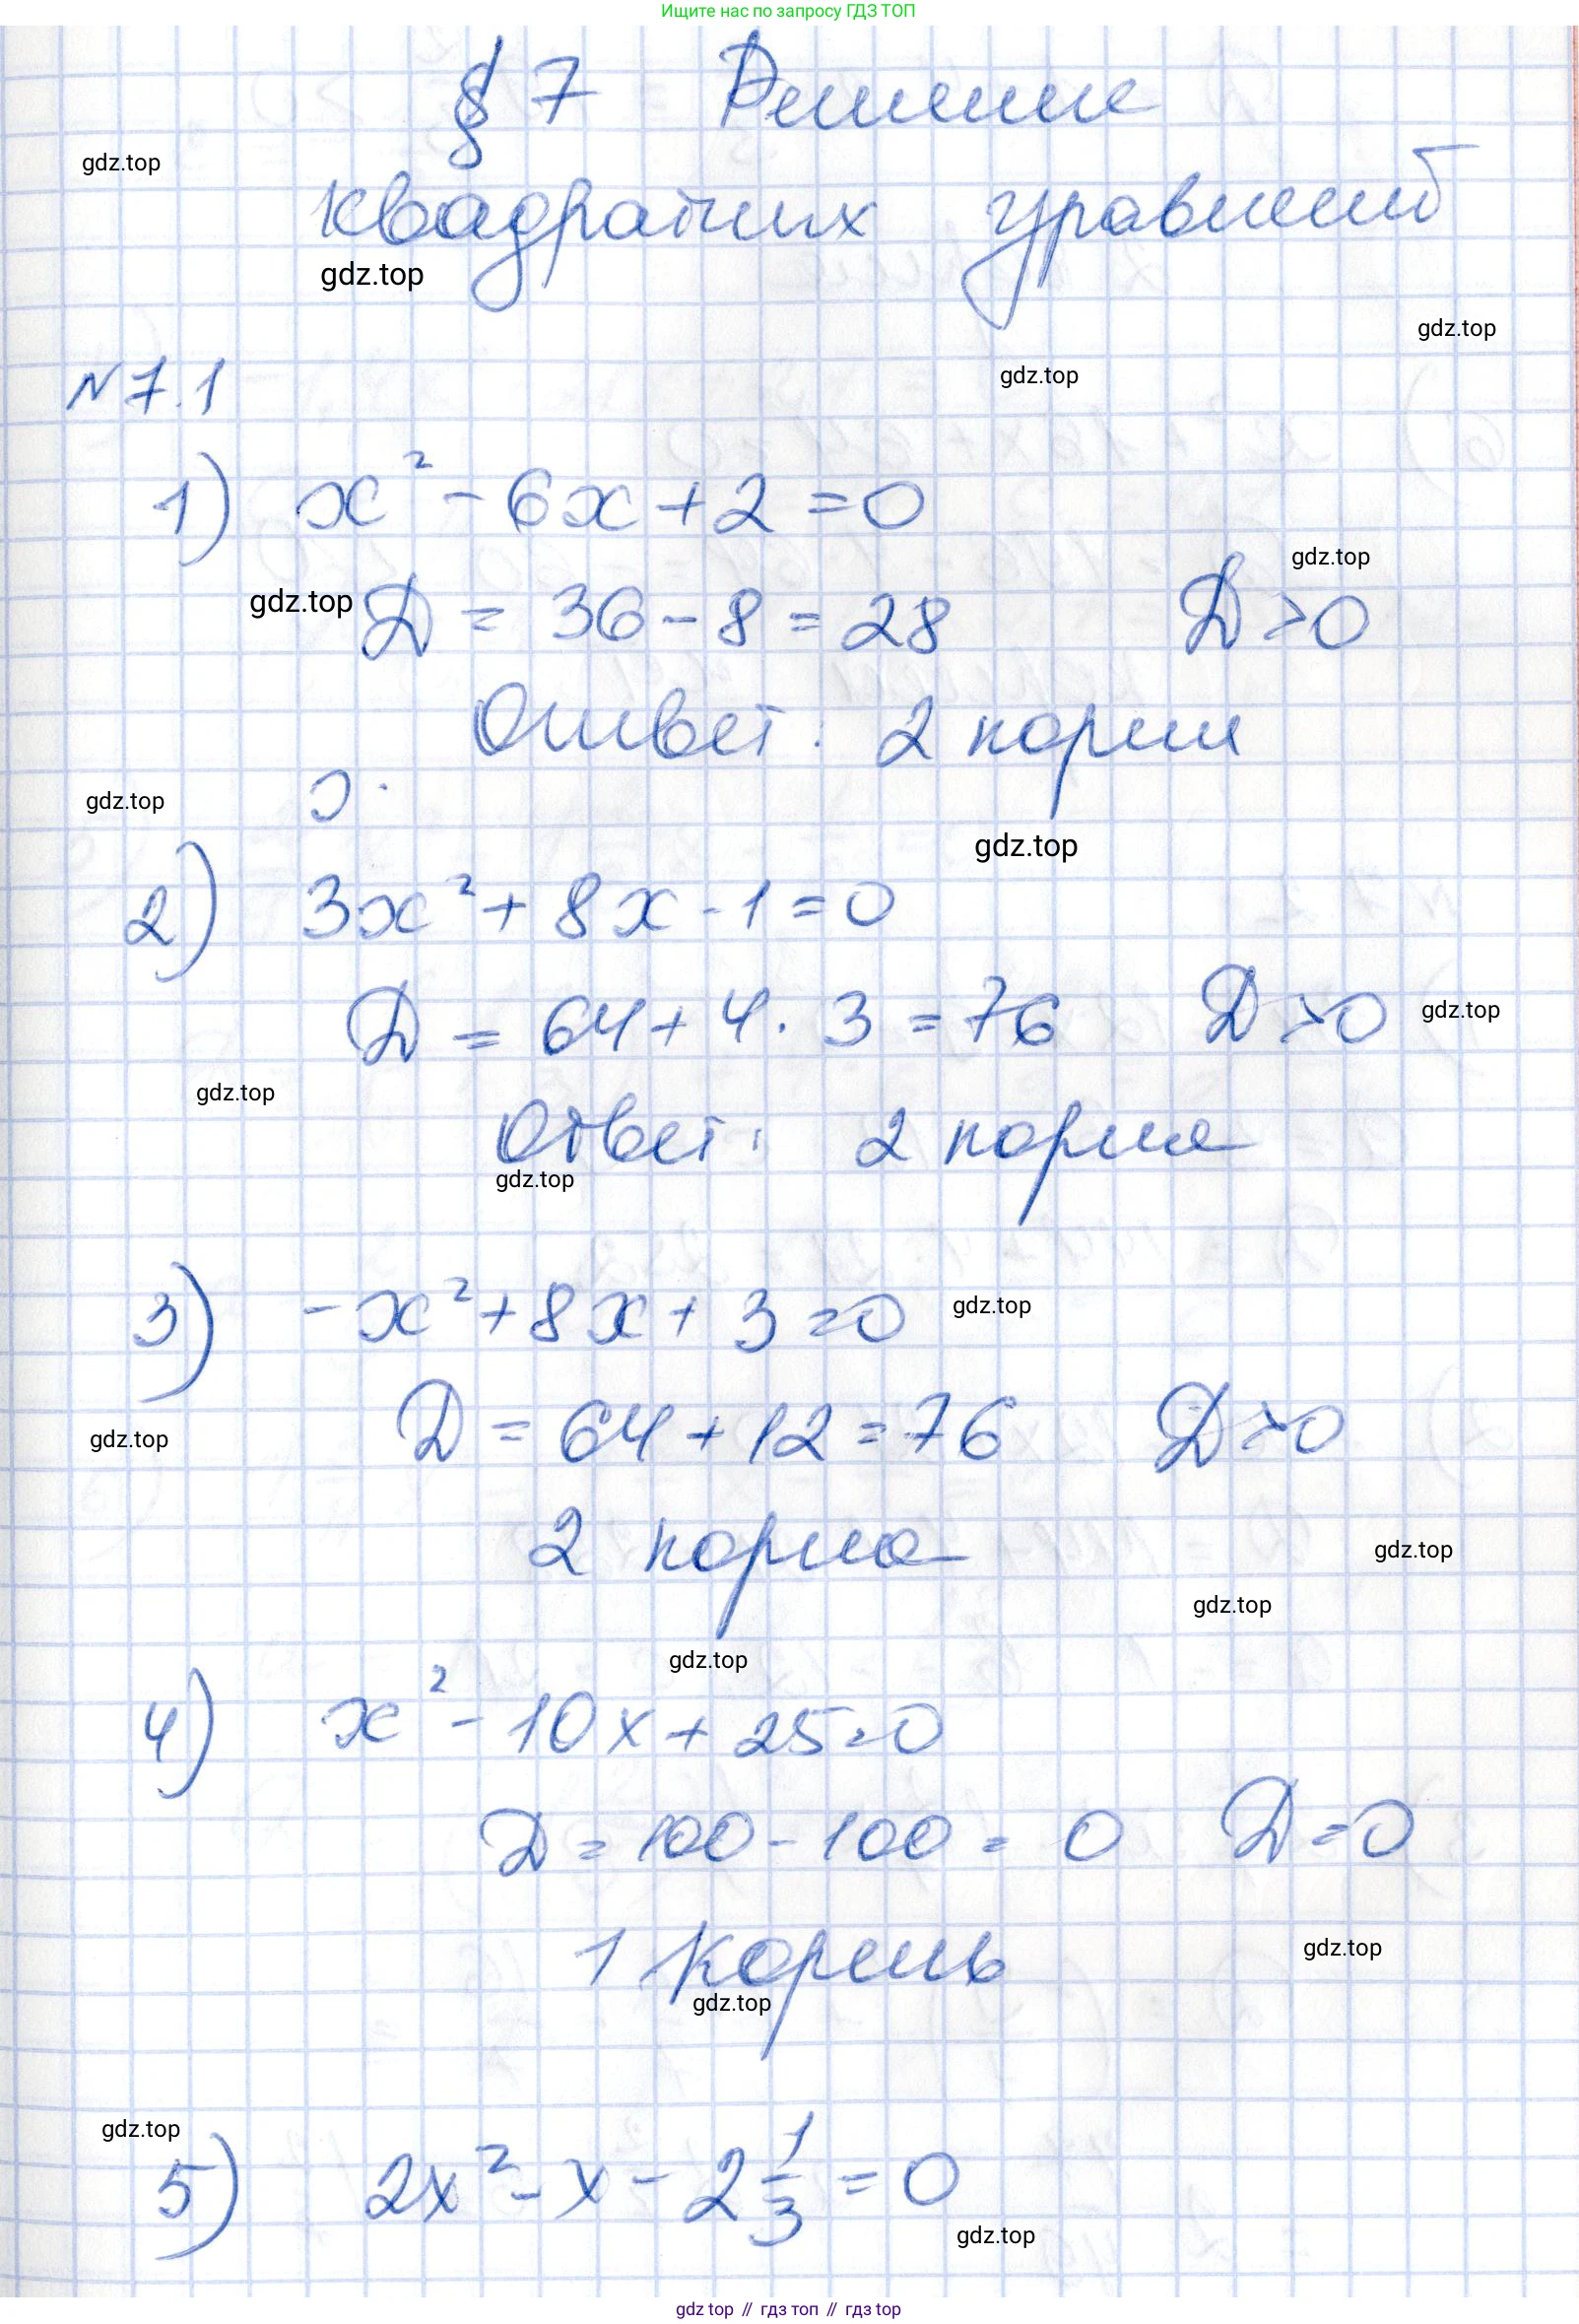 Ищите нас по запросу ГДЗ ТОП
§ 7 Решение
gdz.top
квадратных уравнений
gdz.top
gdz.top
gdz.top
N 7.1
1) x² - 6x + 2 = 0
gdz.top
gdz.top
Д = 36 - 8 = 28 Д > 0
Ответ: 2 корня
gdz.top
gdz.top
2) 3x² + 8x - 1 = 0
Д = 64 + 4 · 3 = 76 Д > 0
gdz.top
gdz.top
Ответ: 2 корня
gdz.top
3) -x² + 8x + 3 = 0
gdz.top
Д = 64 + 12 = 76 Д > 0
gdz.top
2 корня
gdz.top
gdz.top
gdz.top
4) x² - 10x + 25 = 0
Д = 100 - 100 = 0 Д = 0
1 корень
gdz.top
gdz.top
gdz.top
5) 2x² - x - 2 1/3 = 0
gdz.top
gdz top // гдз топ // гдз top